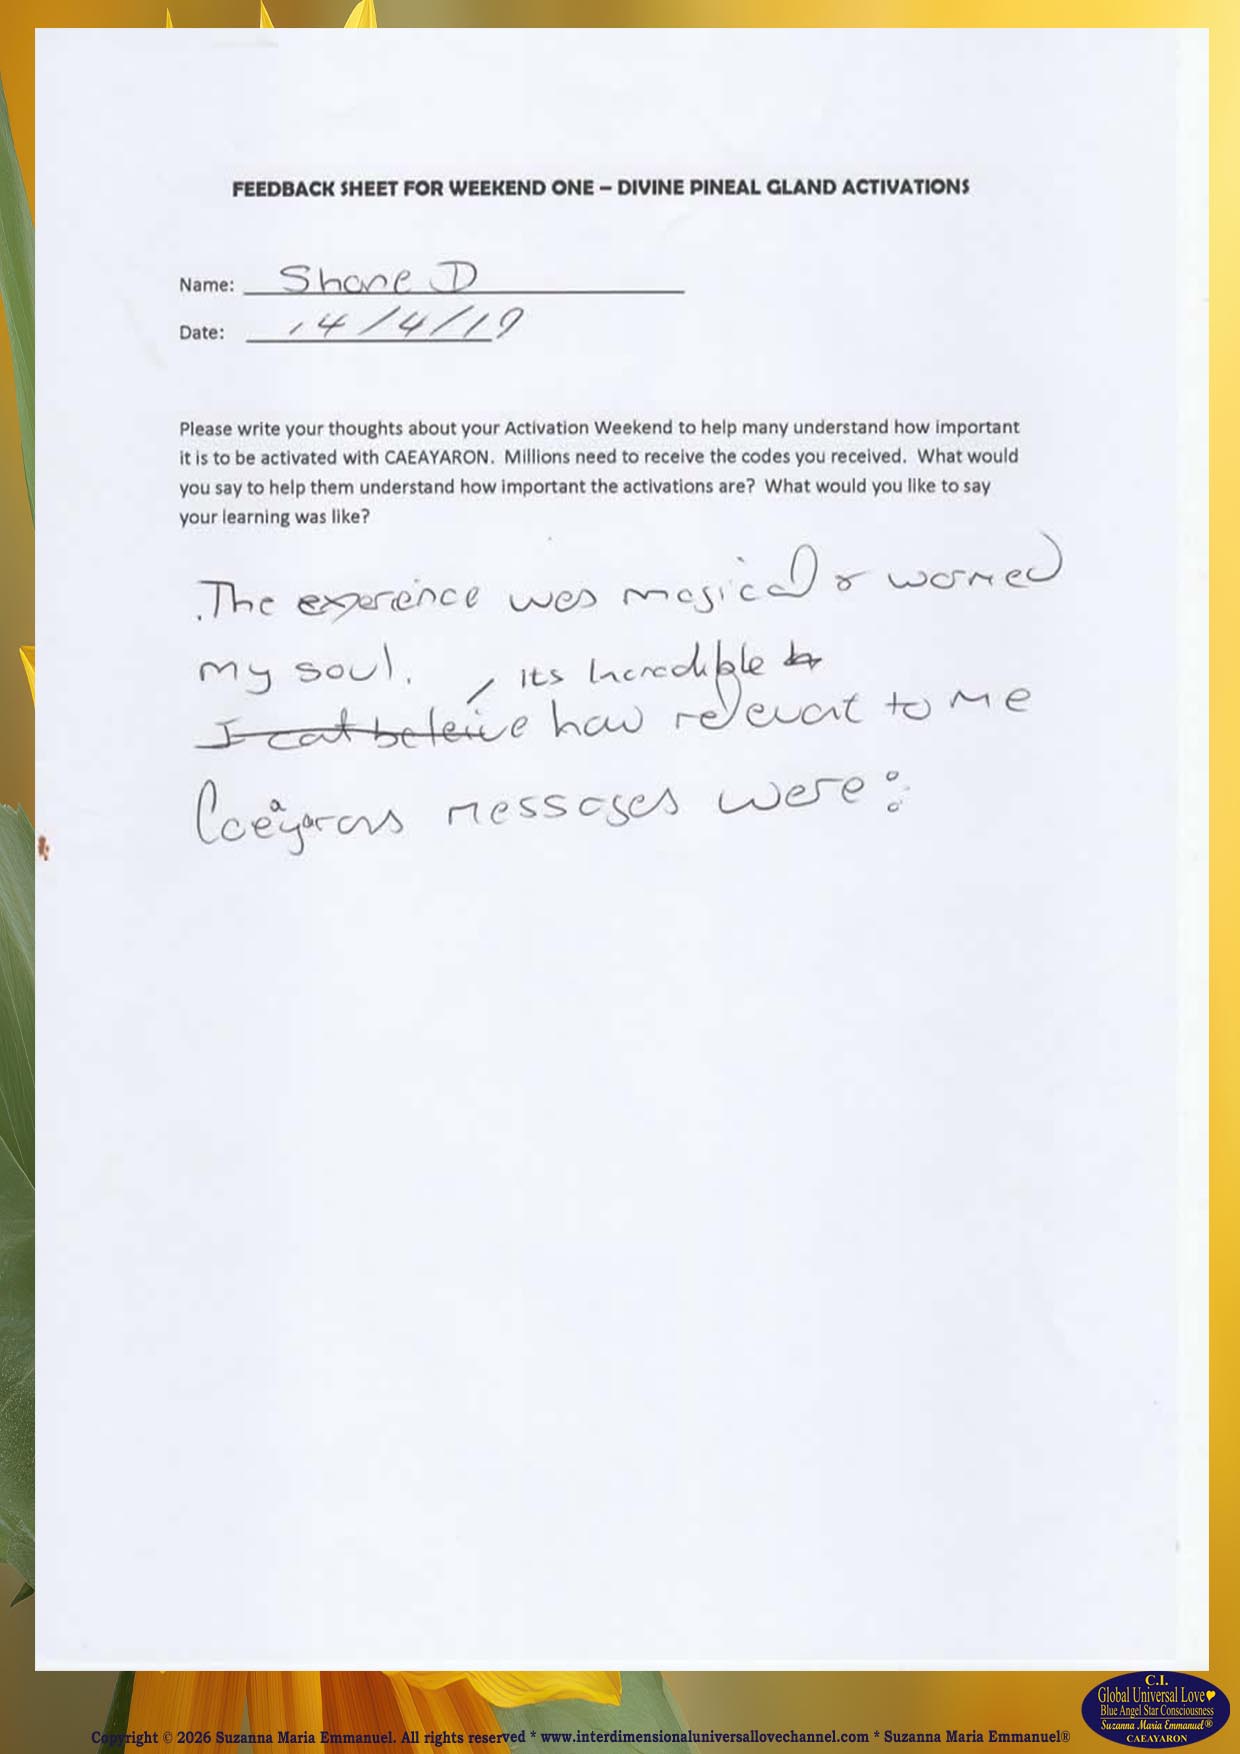 FEEDBACK SHEET FOR WEEKEND ONE – DIVINE PINEAL GLAND ACTIVATIONS
Name: Shane D
Date: 14/4/19
Please write your thoughts about your Activation Weekend to help many understand how important
it is to be activated with CAEAYARON. Millions need to receive the codes you received. What would
you say to help them understand how important the activations are? What would you like to say
your learning was like?
The experience was magical & warmed
my soul.
its Incredible
I cat beleive how relevant to me
Caeayarons messages were:
C.I.
Global Universal Love
Blue Angel Star Consciousness
Suzanna Maria Emmanuel®
CAEAYARON
Copyright © 2026 Suzanna Maria Emmanuel. All rights reserved * www.interdimensionaluniversallovechannel.com * Suzanna Maria Emmanuel®